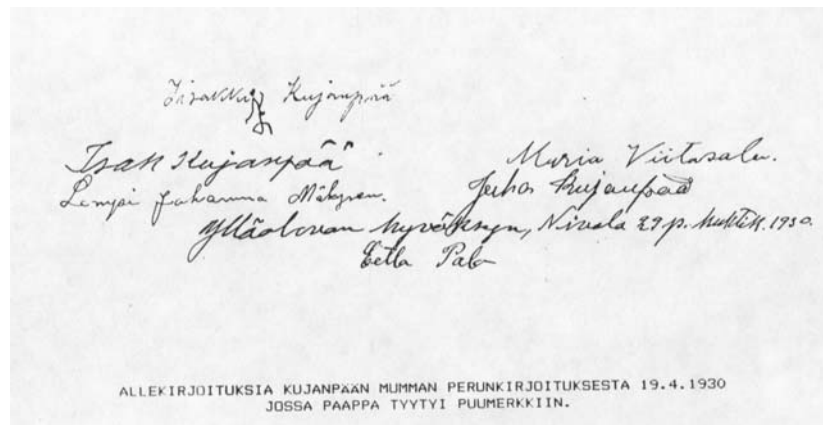 Iisakki Kujanpää
Isak Kujanpää
Maria Viitasalo.
Lempi Johanna Mäkynen.
Juho Kujanpää
Ylläolevan hyväksyn, Nivala 29 p. huhtik. 1930.
Eetla Palo
ALLEKIRJOITUKSIA KUJANPÄÄN MUMMAN PERUNKIRJOITUKSESTA 19.4.1930
JOSSA PAAPPA TYYTYI PUUMERKKIIN.